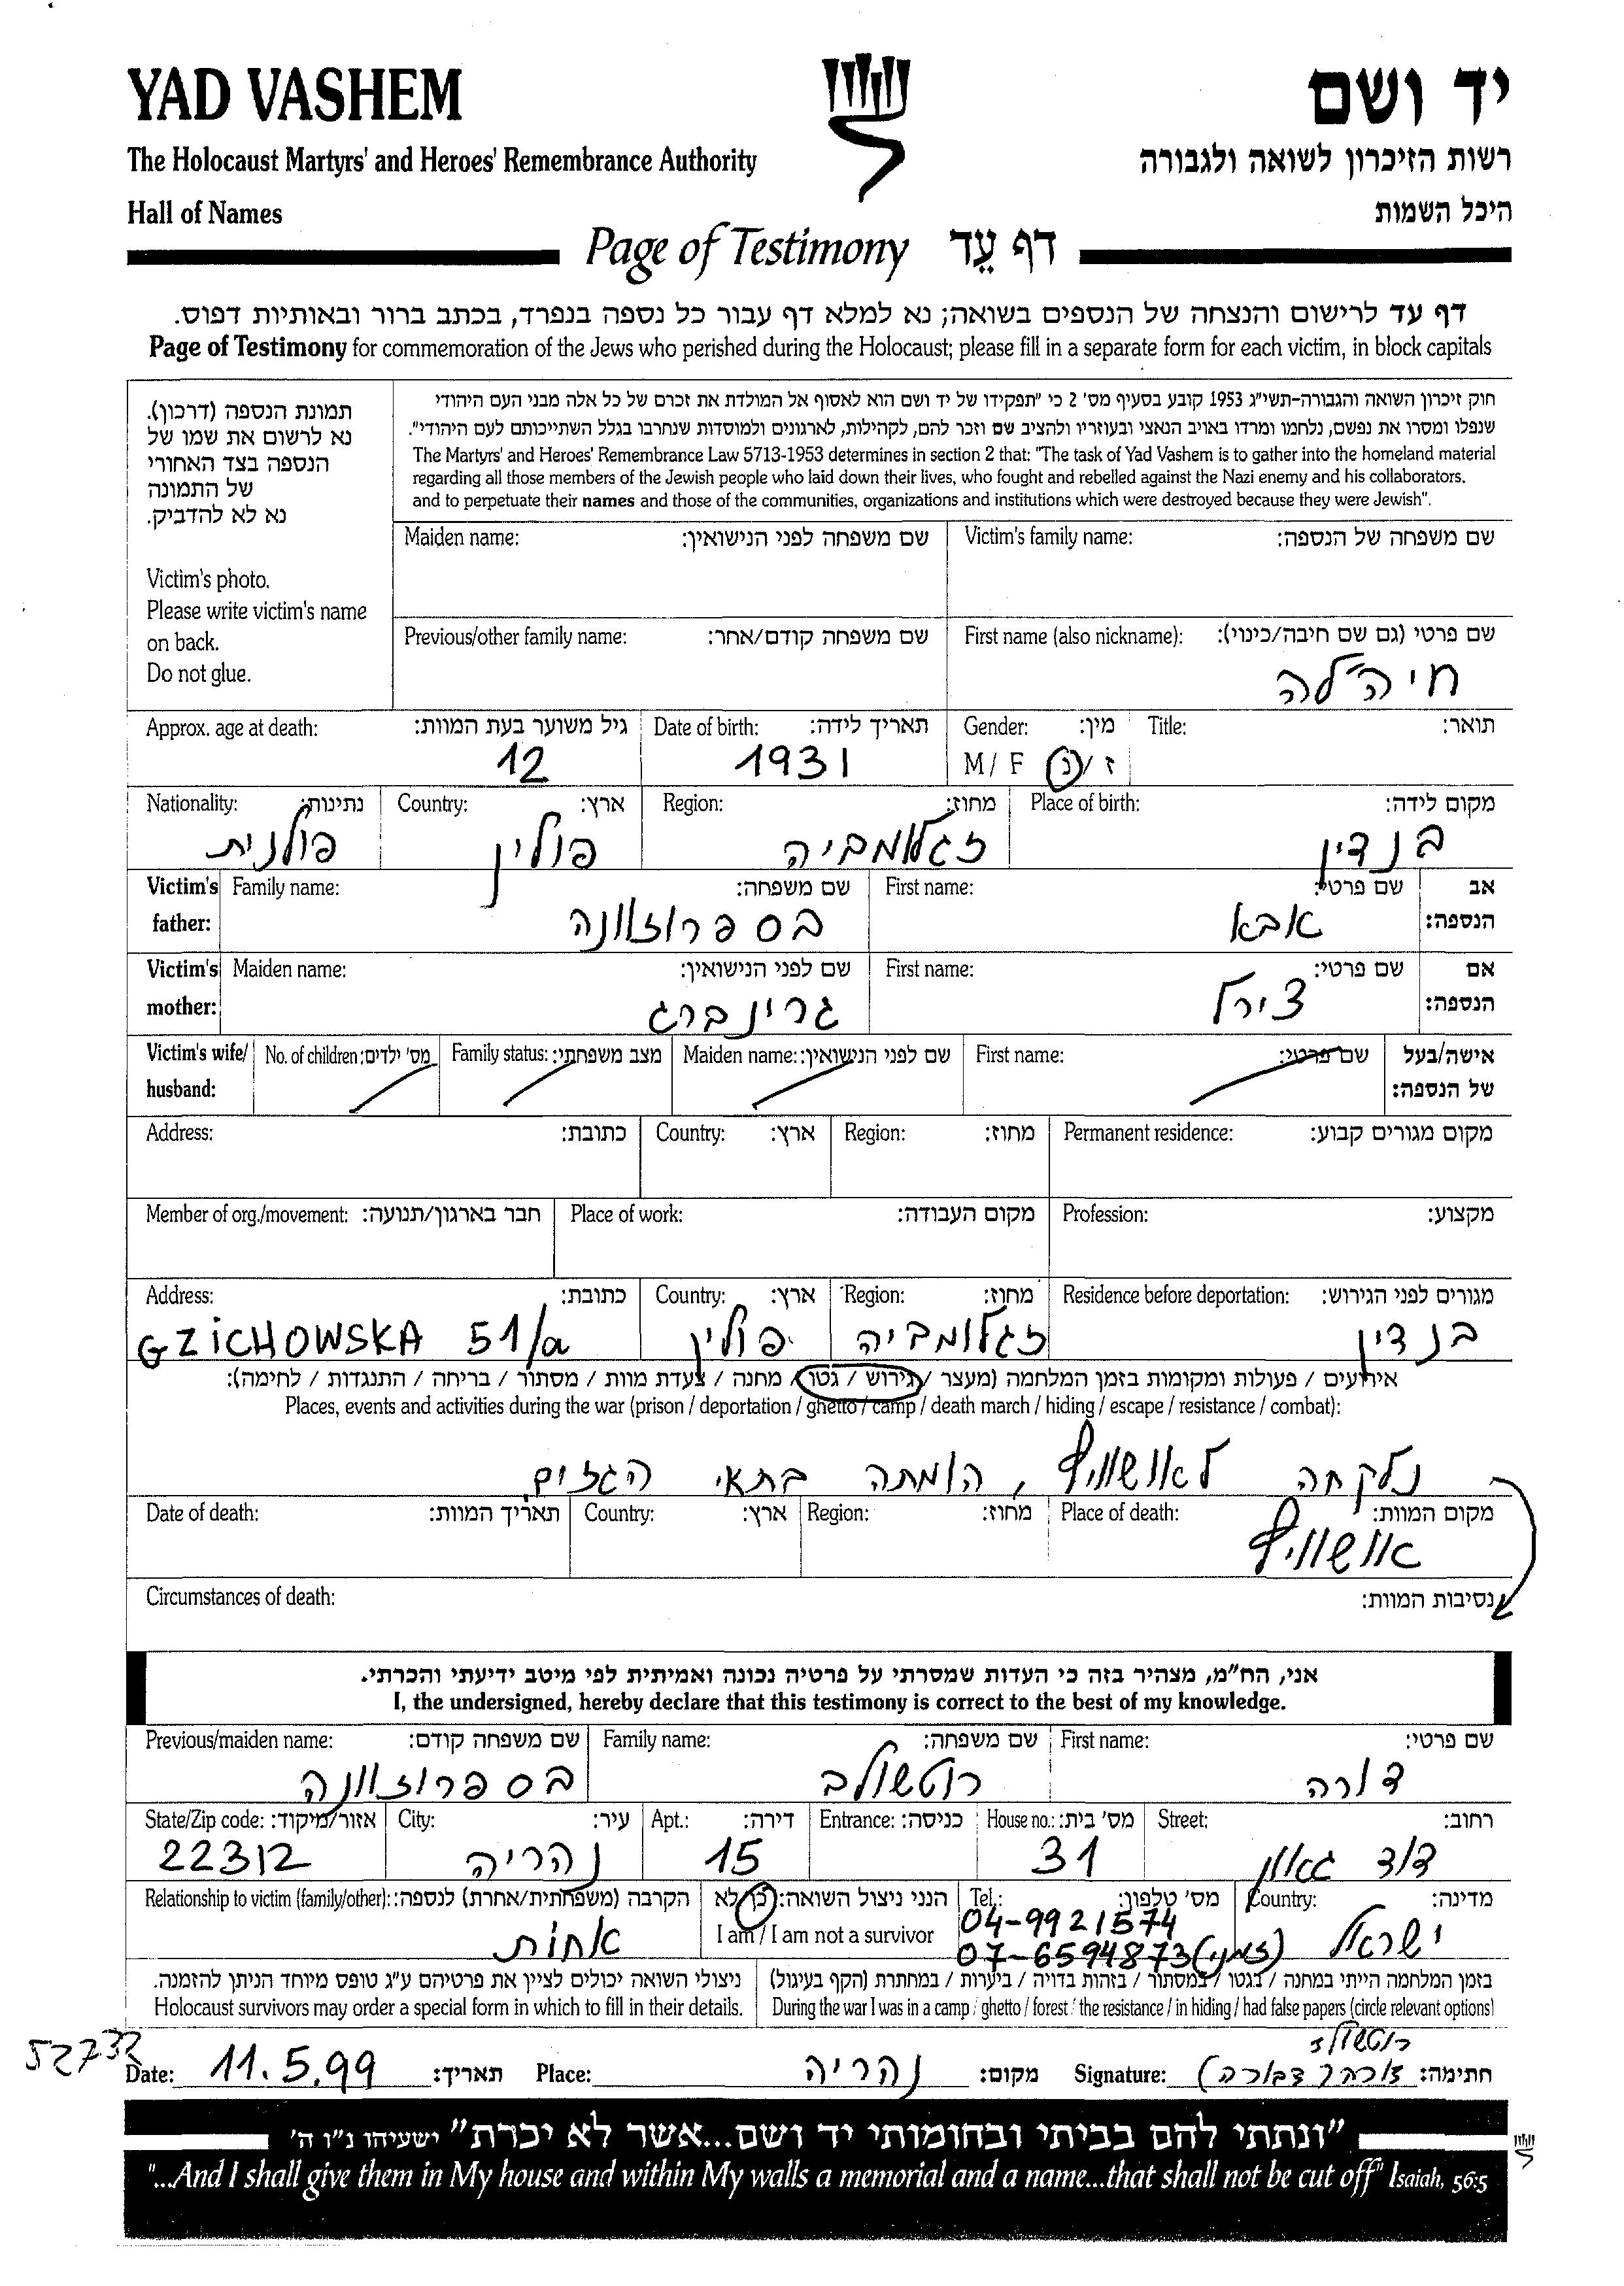 YAD VASHEM
יד ושם
The Holocaust Martyrs' and Heroes' Remembrance Authority
רשות הזיכרון לשואה ולגבורה
Hall of Names
היכל השמות
Page of Testimony דף עֵד
דף עד לרישום והנצחה של הנספים בשואה; נא למלא דף עבור כל נספה בנפרד, בכתב ברור ובאותיות דפוס.
Page of Testimony for commemoration of the Jews who perished during the Holocaust; please fill in a separate form for each victim, in block capitals
תמונת הנספה (דרכון).
נא לרשום את שמו של
הנספה בצד האחורי
של התמונה
נא לא להדביק.
Victim's photo.
Please write victim's name
on back.
Do not glue.
חוק זיכרון השואה והגבורה-תשי"ג 1953 קובע בסעיף מס' 2 כי "תפקידו של יד ושם הוא לאסוף אל המולדת את זכרם של כל אלה מבני העם היהודי
שנפלו ומסרו את נפשם, נלחמו ומרדו באויב הנאצי ובעוזריו ולהציב שם וזכר להם, לקהילות, לארגונים ולמוסדות שנחרבו בגלל השתייכותם לעם היהודי".
The Martyrs' and Heroes' Remembrance Law 5713-1953 determines in section 2 that: "The task of Yad Vashem is to gather into the homeland material
regarding all those members of the Jewish people who laid down their lives, who fought and rebelled against the Nazi enemy and his collaborators.
and to perpetuate their names and those of the communities, organizations and institutions which were destroyed because they were Jewish".
Victim's family name: שם משפחה של הנספה:
Maiden name: שם משפחה לפני הנישואין:
First name (also nickname): שם פרטי (גם שם חיבה/כינוי):
חיה'לה
Previous/other family name: שם משפחה קודם/אחר:
Title: תואר:
Gender: מין:
M / F ז / נ
Date of birth: תאריך לידה:
1931
Approx. age at death: גיל משוער בעת המוות:
12
Place of birth: מקום לידה:
בנדין
Region: מחוז:
זגלומביה
Country: ארץ:
פולין
Nationality: נתינות:
פולנית
Victim's father: אב הנספה:
First name: שם פרטי:
אבא
Family name: שם משפחה:
בספרוזוונה
Victim's mother: אם הנספה:
First name: שם פרטי:
צירל
Maiden name: שם לפני הנישואין:
גרינברג
Victim's wife/ husband: אישה/בעל של הנספה:
First name: שם פרטי:
Maiden name: שם לפני הנישואין:
Family status: מצב משפחתי:
No. of children: מס' ילדים:
Permanent residence: מקום מגורים קבוע:
Region: מחוז:
Country: ארץ:
Address: כתובת:
Profession: מקצוע:
Place of work: מקום העבודה:
Member of org./movement: חבר בארגון/תנועה:
Residence before deportation: מגורים לפני הגירוש:
בנדין
Region: מחוז:
זגלומביה
Country: ארץ:
פולין
Address: כתובת:
GZICHOWSKA 51/a
אירועים / פעולות ומקומות בזמן המלחמה (מעצר / גירוש / גטו / מחנה / צעדת מוות / מסתור / בריחה / התנגדות / לחימה):
Places, events and activities during the war (prison / deportation / ghetto / camp / death march / hiding / escape / resistance / combat):
נלקחה לאושוויץ, הומתה בתאי הגזים.
Place of death: מקום המוות:
אושוויץ
Region: מחוז:
Country: ארץ:
Date of death: תאריך המוות:
Circumstances of death: נסיבות המוות:
אני, הח"מ, מצהיר בזה כי העדות שמסרתי על פרטיה נכונה ואמיתית לפי מיטב ידיעתי והכרתי.
I, the undersigned, hereby declare that this testimony is correct to the best of my knowledge.
First name: שם פרטי:
דורה
Family name: שם משפחה:
רוטשולב
Previous/maiden name: שם משפחה קודם:
בספרוזוונה
Street: רחוב:
דוד גאון
House no.: מס' בית:
31
Entrance: כניסה:
Apt.: דירה:
15
City: עיר:
נהריה
State/Zip code: אזור/מיקוד:
22312
Country: מדינה:
ישראל
Tel.: מס' טלפון:
04-9921574
07-6594873 (זמני)
הנני ניצול השואה: כן/לא
I am / I am not a survivor
Relationship to victim (family/other): הקרבה (משפחתית/אחרת) לנספה:
אחות
בזמן המלחמה הייתי במחנה / בגטו / במסתור / בזהות בדויה / ביערות / במחתרת (הקף בעיגול)
During the war I was in a camp / ghetto / forest / the resistance / in hiding / had false papers (circle relevant options)
ניצולי השואה יכולים לציין את פרטיהם ע"ג טופס מיוחד הניתן להזמנה.
Holocaust survivors may order a special form in which to fill in their details.
52732
Date: 11.5.99 תאריך:
Place: נהריה מקום:
Signature: חתימה:
"ונתתי להם בביתי ובחומותי יד ושם...אשר לא יכרת" ישעיהו נ"ו ה'
"...And I shall give them in My house and within My walls a memorial and a name...that shall not be cut off" Isaiah, 56:5